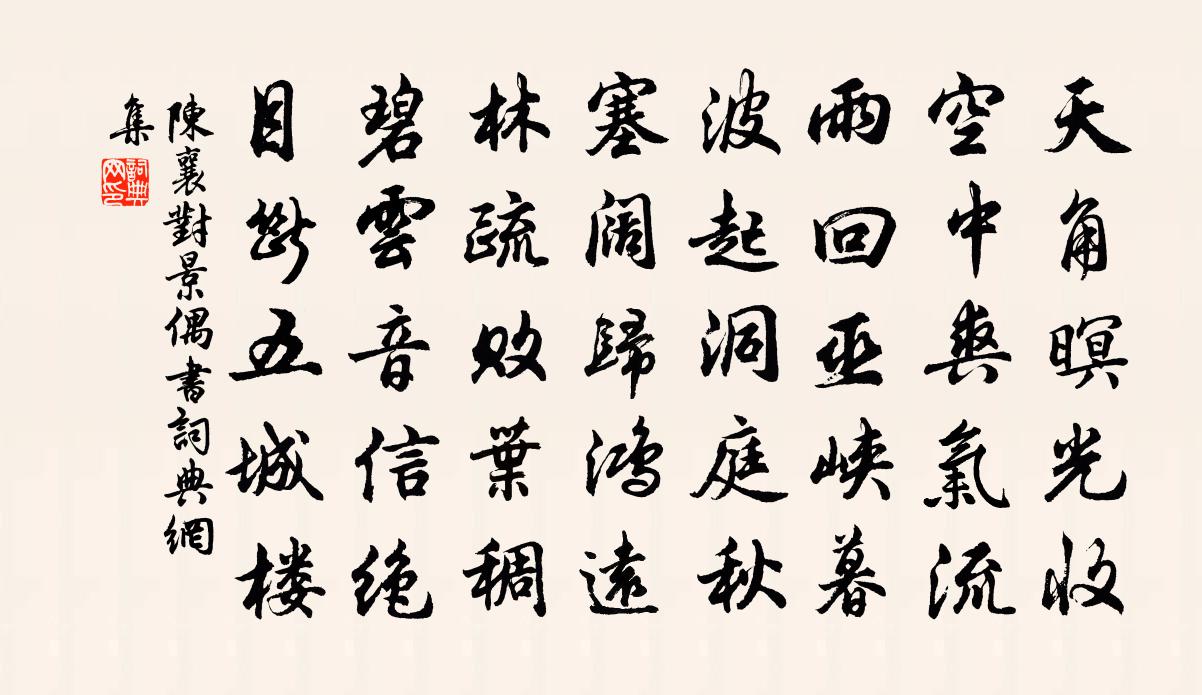 天角暝光收
空中爽氣流
雨回巫峽暮
波起洞庭秋
塞闊歸鴻遠
林疏敗葉稠
碧雲音信絶
目斷五城楼
陳襄對景偶書詞典網
集
詞典
网印